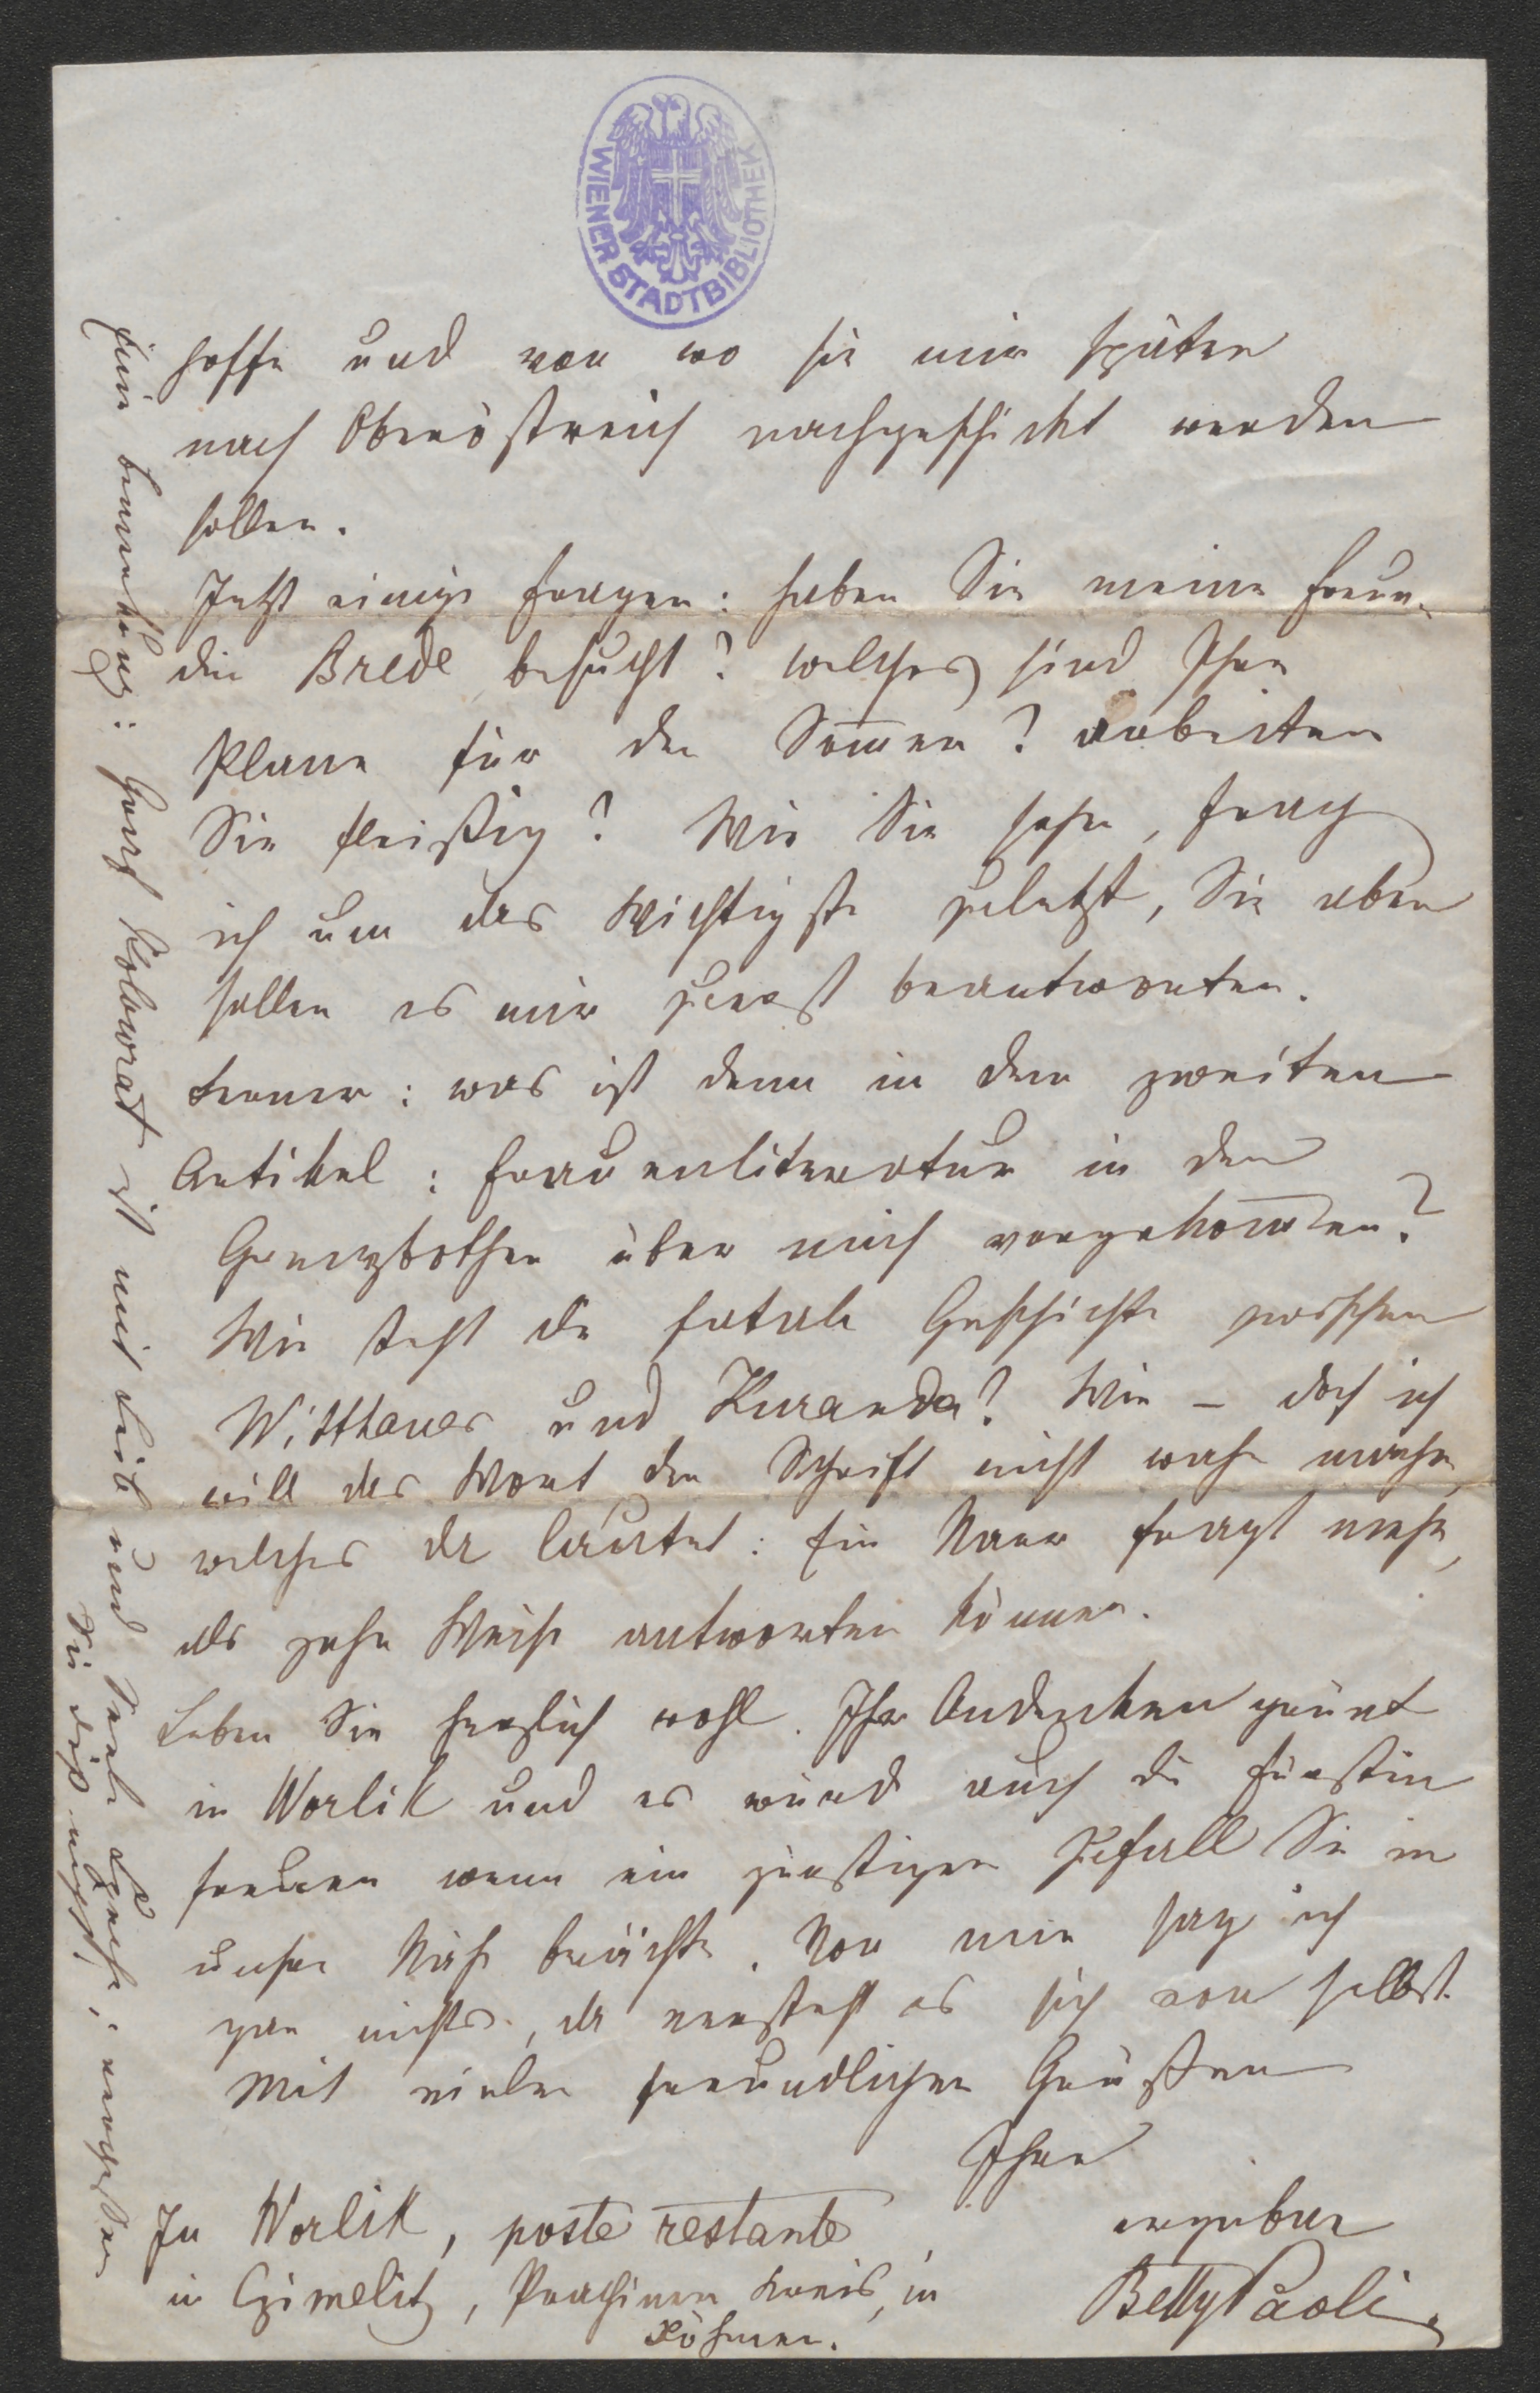 WIENER STADTBIBLIOTHEK
hoffe und von wo sie mir später
nach Oberöstreich nachgeschickt werden
sollen.
Jetzt einige Fragen: haben Sie meine Freun-
din Brede besucht? welches sind Ihre
Plane für den Som̄er? arbeiten
Sie fleißig? Wie Sie sehen, frag
ich um das Wichtigste zuletzt, Sie aber
sollen es mir zuerst beantworten.
Ferner: was ist denn in dem zweiten
Artikel: Frauenliteratur in den
Grenzbothen über mich vorgekom̄en?
Wie steht die fatale Geschichte zwischen
Witthauer und Kuranda? Wie – doch ich
will das Wort der Schrift nicht wahr machen,
welches da lautet: Ein Narr fragt mehr,
als zehn Weise antworten können.
Leben Sie herzlich wohl. Ihr Andenken grünt
in Worlik und es würde auch die Fürstin
freuen wenn ein günstiger Zufall Sie in
unsre Nähe brächte. Von mir sag ich
gar nichts, da versteht es sich von selbst.
Mit vielen freundlichen Grüßen
Ihre
ergebne
Betty Paoli.
In Worlik, poste restante
in Czimelitz, Prachiner Kreis, in
Böhmen.
Eine Bemerkung: Hans Kolowrat ist mit Leib und Seele Czeche; vergessen
Sie dieß nicht!